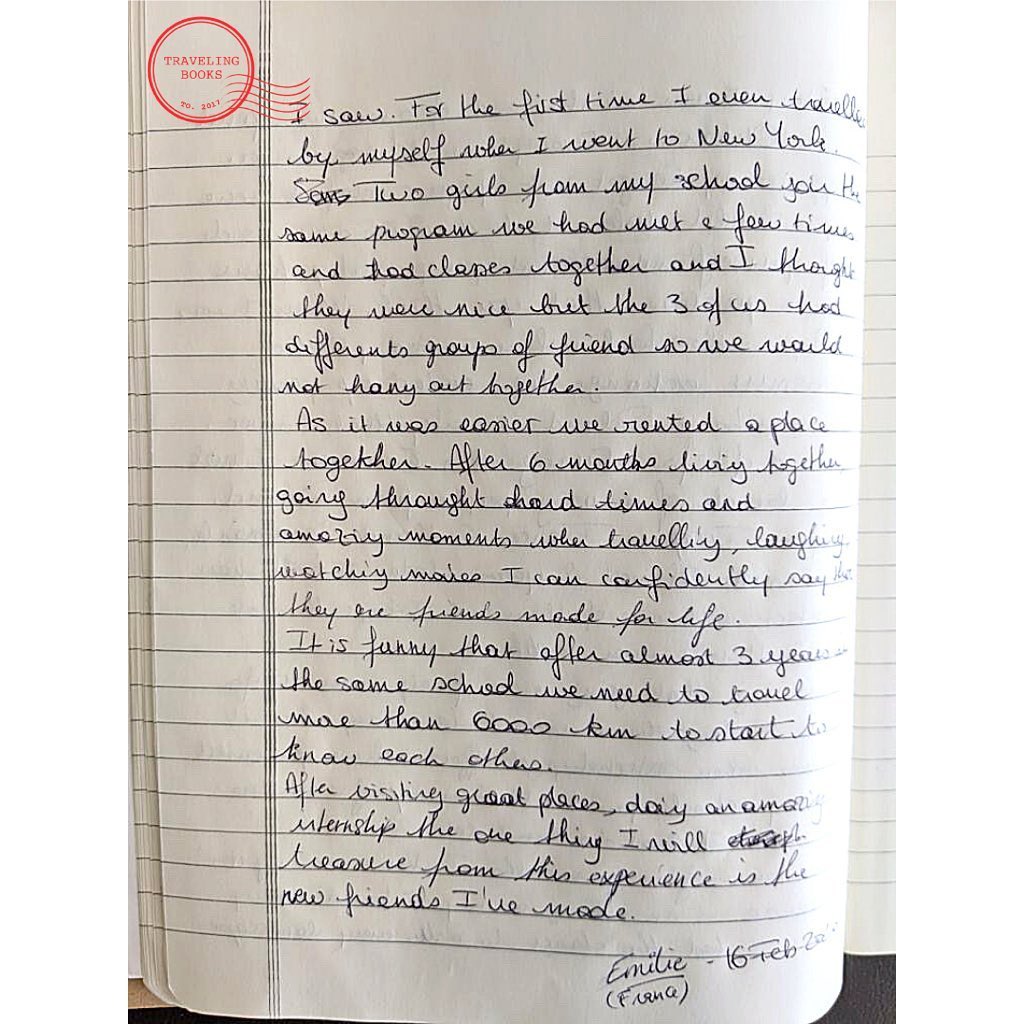 TRAVELING
BOOKS
TO. 2017
I saw. For the first time I even travelle
by myself when I went to New York.
Two girls from my school join the
same program we had met a few times
and had classes together and I thought
they were nice but the 3 of us had
differents groups of friend so we would
not hang out together.
As it was easier we rented a place
togekher. After 6 months living together
going throught hard times and
amazing moments when travelling, laughing,
watching movies I can confidently say that
they are friends made for life.
It is funny that after almost 3 years
the same school we need to travel
more than 6000 km to start to
know each others.
After visiting great places, doing an amazing
internship the one thing I will
treasure from this experience is the
new friends I've made.
Emilie - 16 Feb
(France)